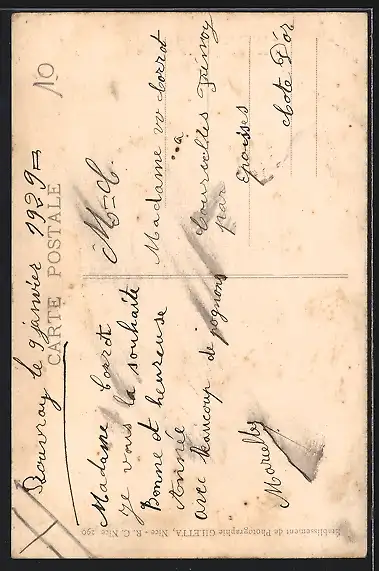 le 9 janvier 1929
CARTE POSTALE
Madame Corrot
je vous la souhaite
Bonne et heureuse
Année
avec beaucoup de pognons
Madame vve Corrot
à
Courcelles Frémoy
par
Epoisses
Cote D'or
Etablissement de Photographie GILETTA, Nice - R. C. Nice 190